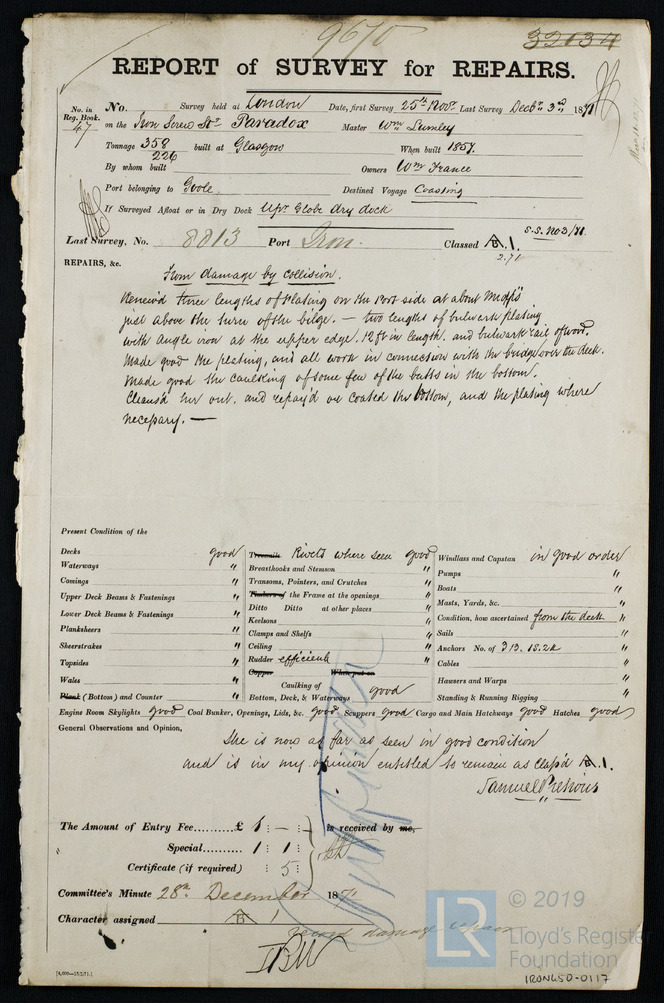 9670
32034
REPORT of SURVEY for REPAIRS.
No. in Reg. Book. 47
No. Survey held at London Date, first Survey 25th Novr Last Survey Decbr 3rd 1871
on the Iron Screw Str Paradox Master Wm Lumley
Tonnage 358 226 built at Glasgow When built 1857.
By whom built Owners Wm France
Port belonging to Goole Destined Voyage Coasting
If Surveyed Afloat or in Dry Dock Upr Globe dry dock
S.S. No 3/71
Last Survey, No. 8813 Port Iron. Classed A.1.
2.71
REPAIRS, &c.
From damage by collision.
Renew'd three lengths of plating on the Port side at about Midp's
just above the turn of the bilge. — two lengths of bulwark plating
with angle iron at the upper edge. 12 ft in length. and bulwark rail of wood.
Made good the plating, and all work in connection with the bridge over the deck.
Made good the caulking of some few of the butts in the bottom.
Cleans'd her out. and repay'd or coated the bottom, and the plating where
necessary. —
Present Condition of the
Decks good
Waterways "
Comings "
Upper Deck Beams & Fastenings "
Lower Deck Beams & Fastenings "
Planksheers "
Sheerstrakes "
Topsides "
Wales "
Plank (Bottom) and Counter "
Treenails Rivets where seen good
Breasthooks and Stemson "
Transoms, Pointers, and Crutches "
Timbers of the Frame at the openings "
Ditto Ditto at other places "
Keelsons "
Clamps and Shelfs "
Ceiling "
Rudder efficient
Copper When put on
Caulking of Bottom, Deck, & Waterways good
Windlass and Capstan in good order
Pumps "
Boats "
Masts, Yards, &c. "
Condition, how ascertained from the deck "
Sails "
Anchors No. of 3 B. 1S. 2K "
Cables "
Hausers and Warps "
Standing & Running Rigging "
Engine Room Skylights good Coal Bunker, Openings, Lids, &c. good Scuppers good Cargo and Main Hatchways good Hatches good
General Observations and Opinion,
She is now as far as seen in good condition
and is in my opinion entitled to remain as class'd A.1.
Samuel Pretious
The Amount of Entry Fee.......... £ 1 : — : is received by me,
Special.......... 1 : 1 :
Certificate (if required) : 5 :
Committee's Minute 28th December 1871
Character assigned A 1
damage repairs
LR
© 2019
Lloyd's Register
Foundation
IRON650-0117